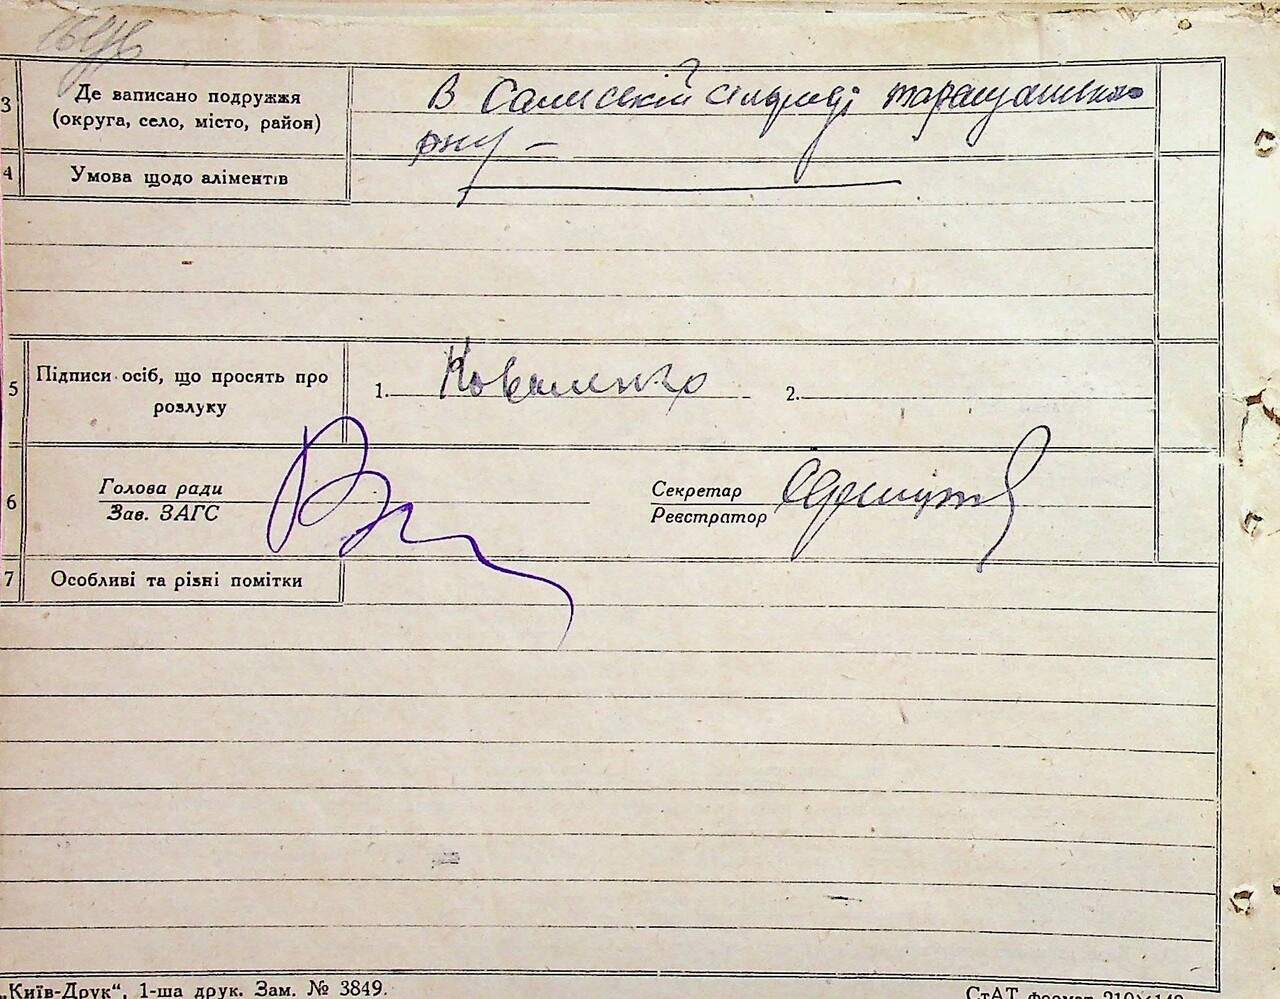 3
Де записано подружжя
(округа, село, місто, район)
В сільраді Таращанського
р-ну —
4
Умова щодо аліментів
5
Підписи осіб, що просять про
розлуку
1. Коваленко
2.
6
Голова ради
Зав. ЗАГС
Секретар
Реєстратор
7
Особливі та різні помітки
„Київ-Друк“, 1-ша друк. Зам. № 3849.
СтАТ формат 210×148